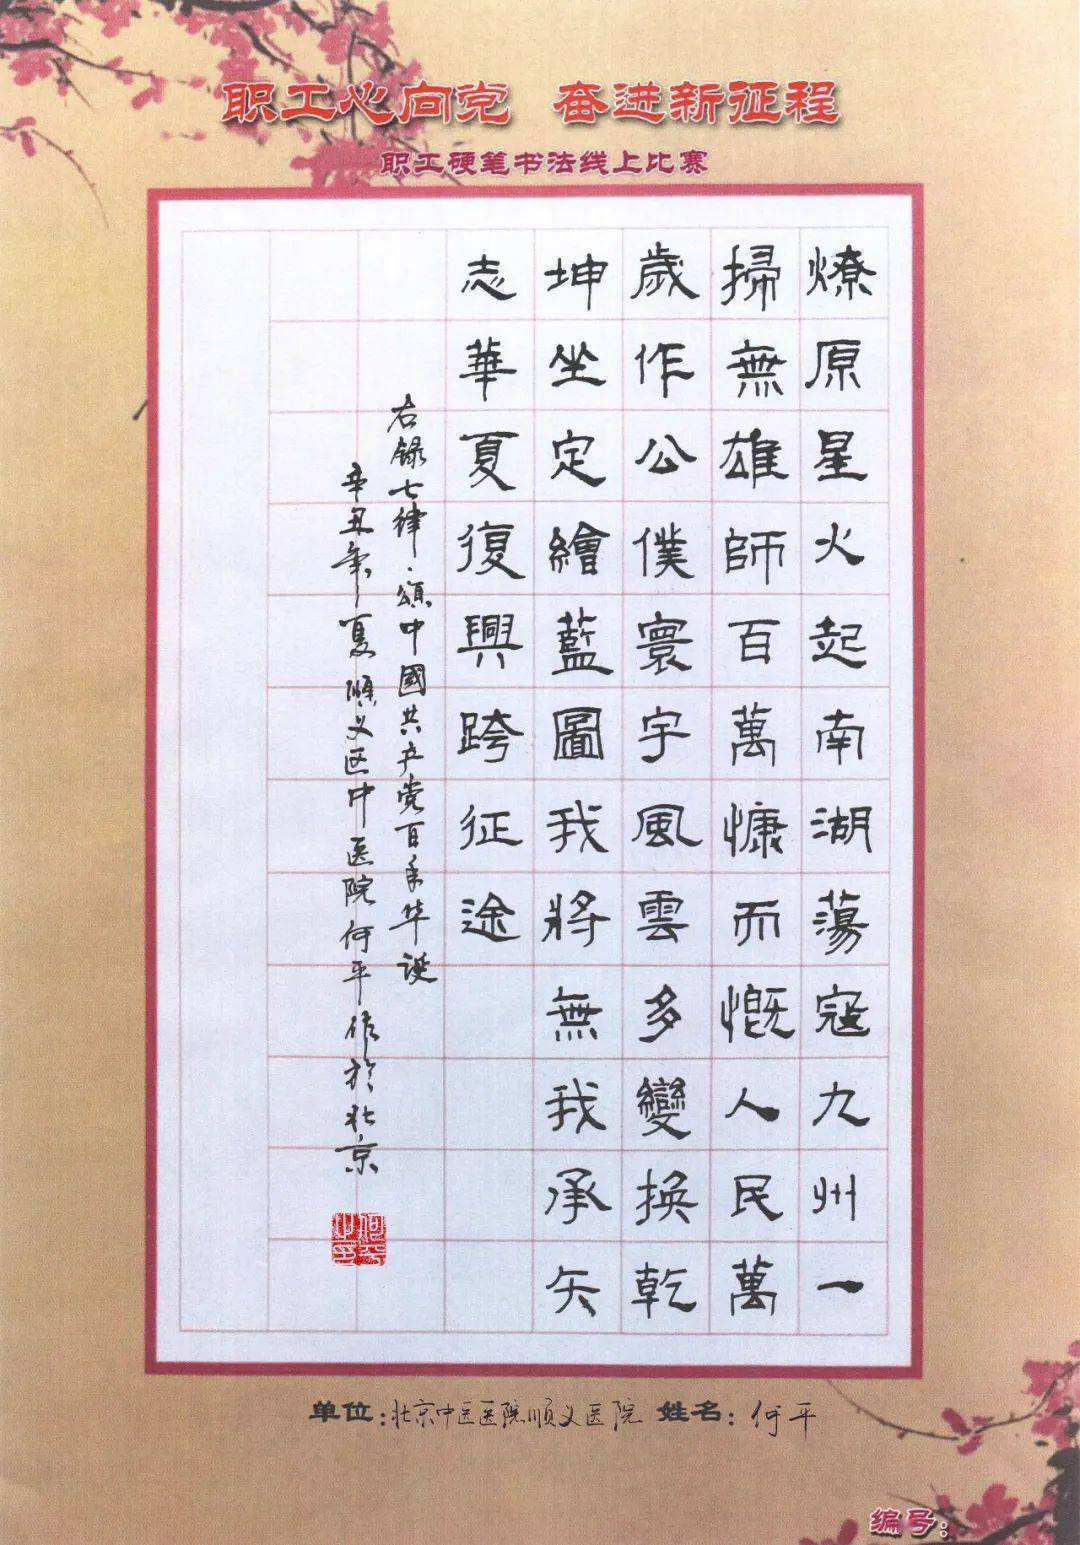 职工心向党 奋进新征程
职工硬笔书法线上比赛
燎原星火起南湖蕩寇九州一
掃無雄師百萬慷而慨人民萬
歲作公僕寰宇風雲多變換乾
坤坐定繪藍圖我將無我承矢
志華夏復興跨征途
右録七律·頌中國共产党百年华诞
辛丑年夏顺义区中医院何平作於北京
单位:北京中医医院顺义医院 姓名:何平
编号: